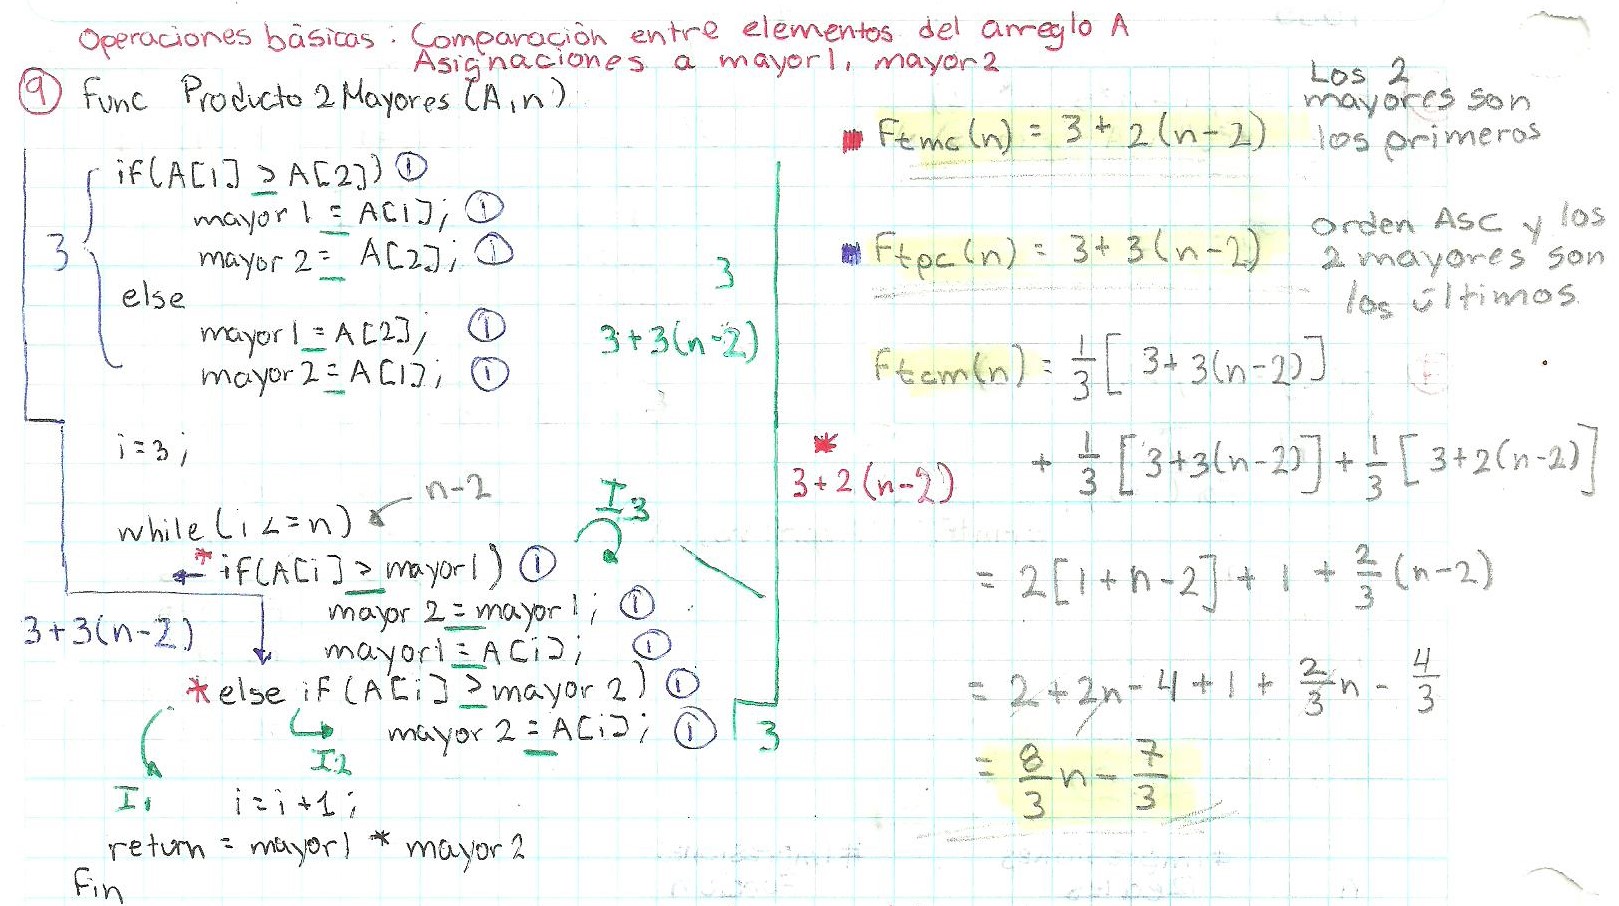 Operaciones básicas: Comparación entre elementos del arreglo A
Asignaciones a mayor1, mayor2
9 func Producto2Mayores(A,n)
if(A[1] > A[2]) 1
mayor1 = A[1]; 1
mayor2 = A[2]; 1
else
mayor1 = A[2]; 1
mayor2 = A[1]; 1
3
i=3;
while(i<=n)
n-2
* if(A[i] > mayor1) 1
mayor2 = mayor1; 1
mayor1 = A[i]; 1
* else if(A[i] > mayor2) 1
mayor2 = A[i]; 1
3+3(n-2)
I1
I2
I3
i=i+1;
return = mayor1 * mayor2
Fin
3
3+3(n-2)
3
*
3+2(n-2)
Ftmc(n) = 3+2(n-2)
Los 2
mayores son
los primeros
Ftpc(n) = 3+3(n-2)
Orden Asc y los
2 mayores son
los últimos.
Ftcm(n) = 1/3[3+3(n-2)]
+ 1/3[3+3(n-2)] + 1/3[3+2(n-2)]
= 2[1+n-2] + 1 + 2/3(n-2)
= 2+2n-4+1+2/3n-4/3
= 8/3n-7/3